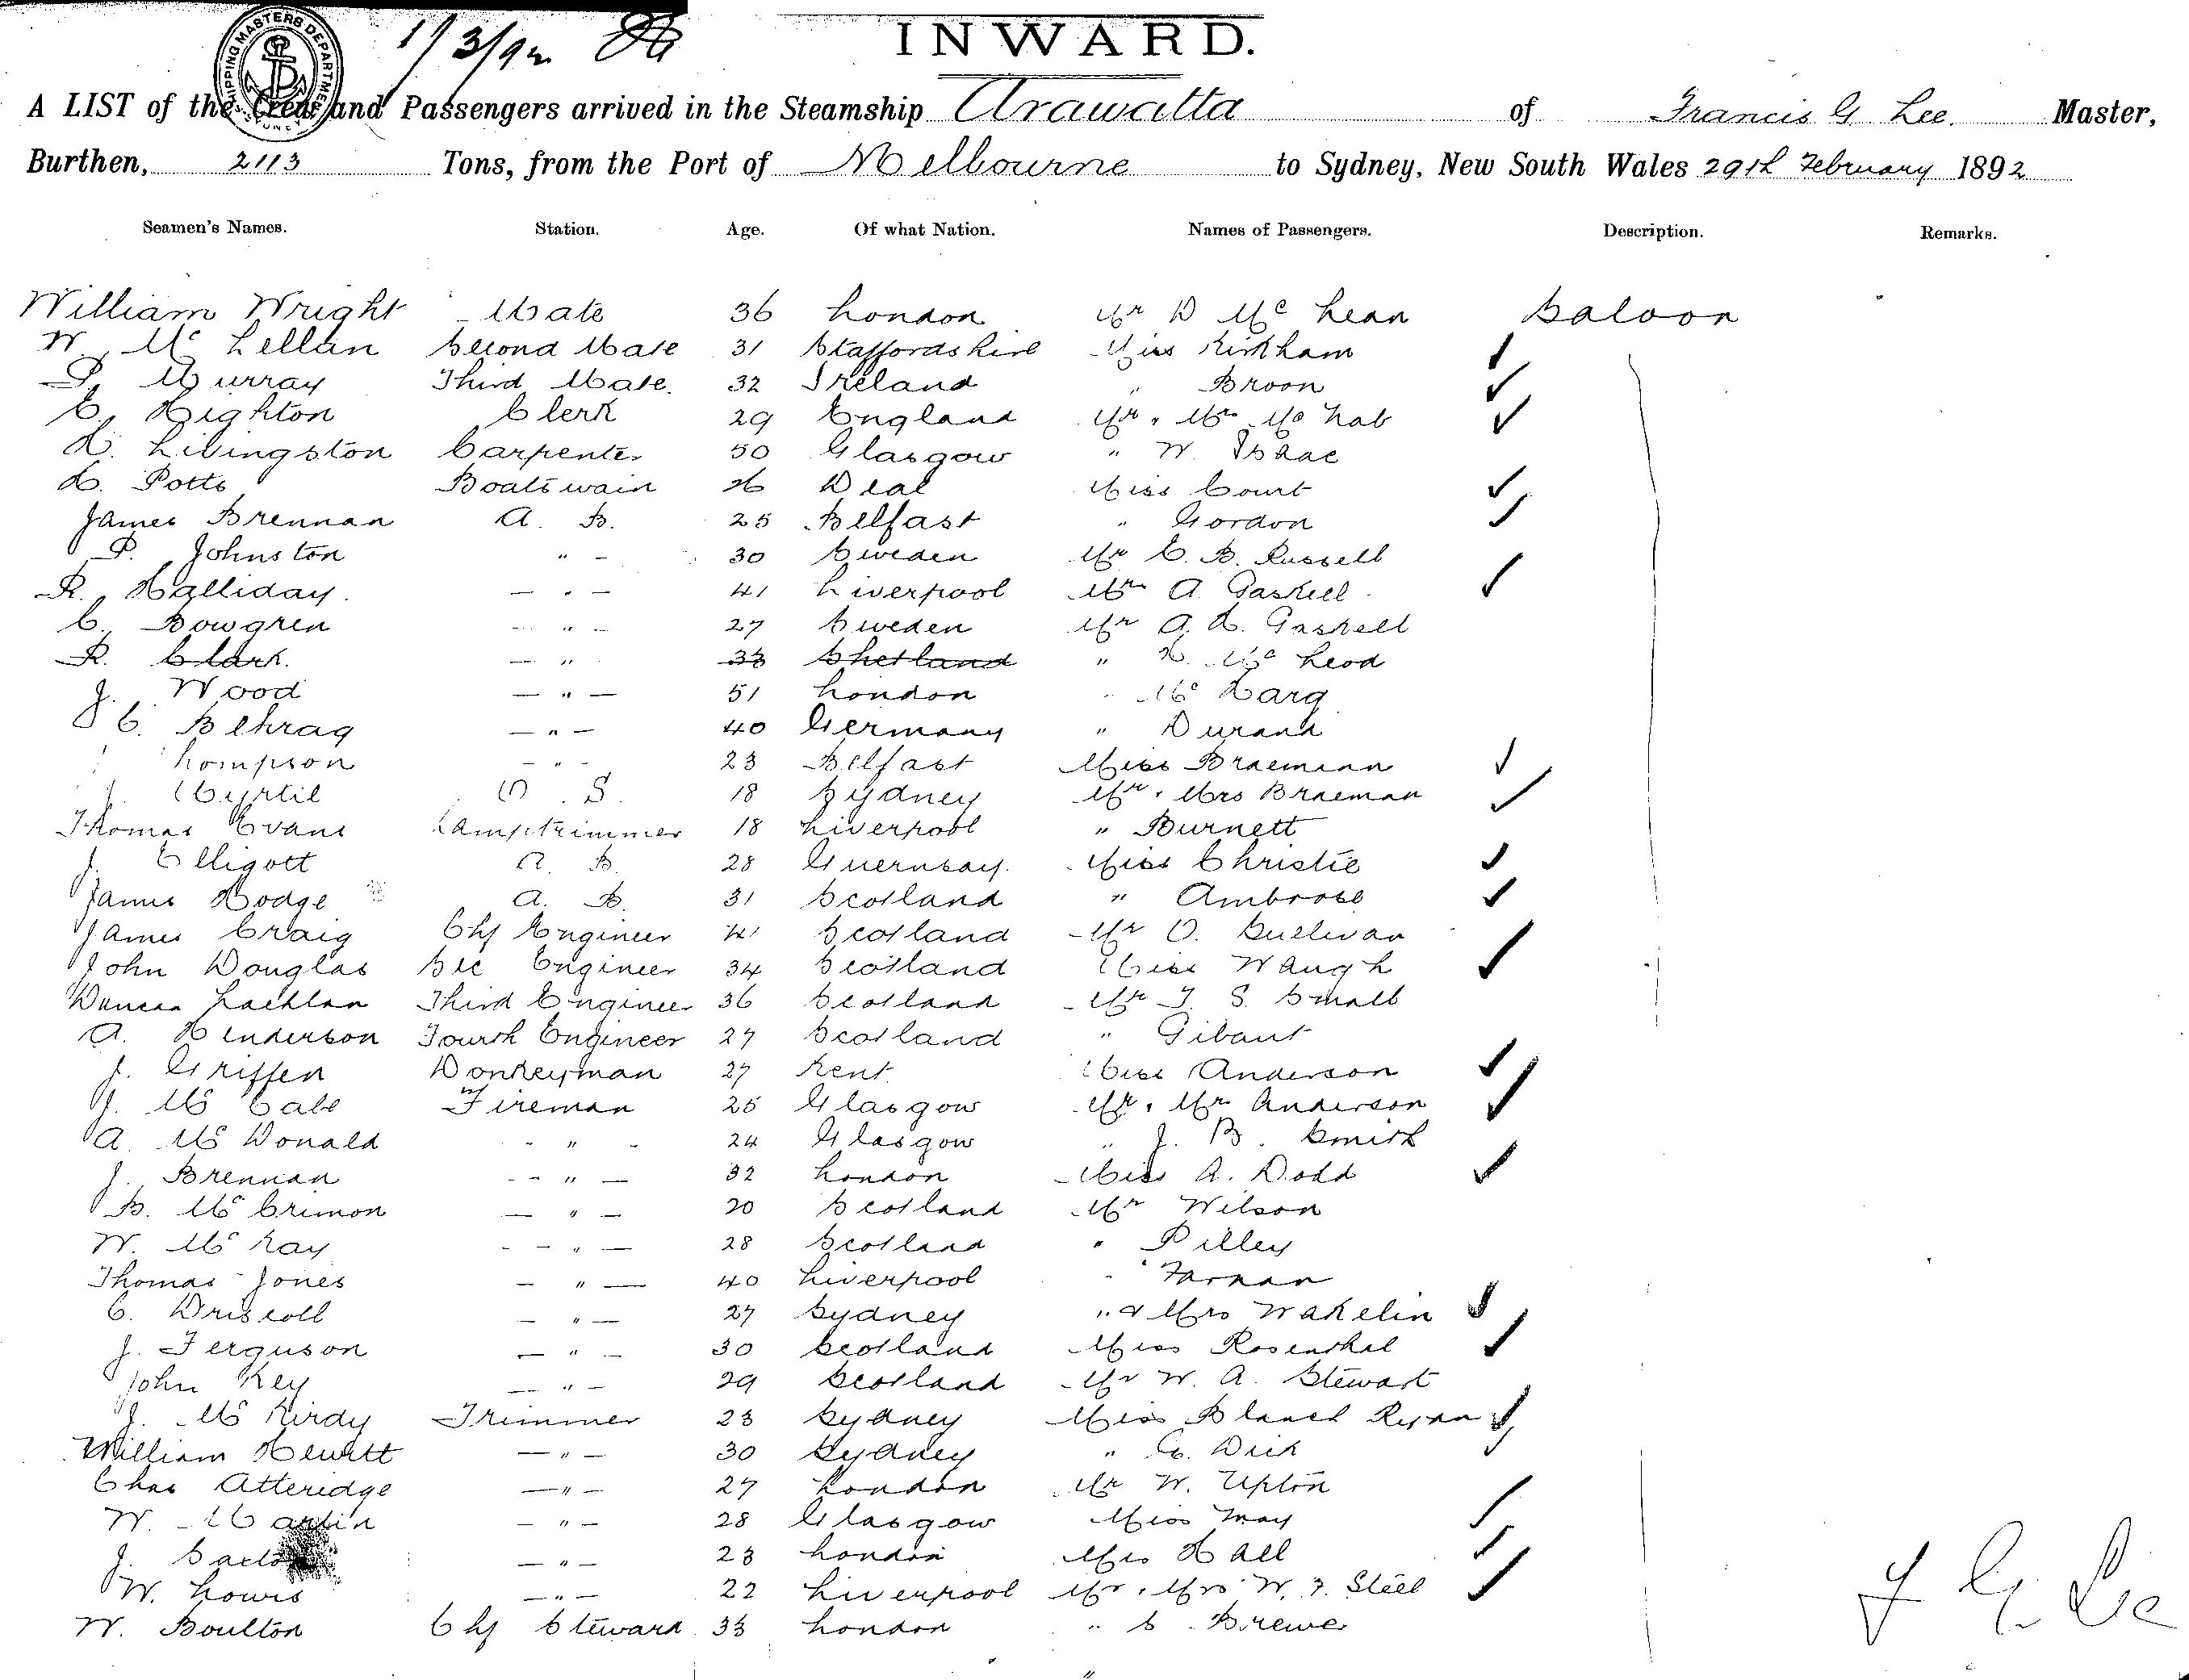 SHIPPING MASTERS DEPARTMENT
1/3/92
INWARD.
A LIST of the Crew and Passengers arrived in the Steamship Arawatta of Francis G Lee. Master,
Burthen, 2113 Tons, from the Port of Melbourne to Sydney, New South Wales 29th February 1892
Seamen's Names. Station. Age. Of what Nation. Names of Passengers. Description. Remarks.
William Wright Mate 36 London Mr D McLean Saloon
W. McLellan Second Mate 31 Staffordshire Miss Kirkham
P. Murray Third Mate. 32 Ireland " Broon
C. Highton Clerk 29 England Mr & Mrs McNab
D. Livingston Carpenter 50 Glasgow " W. Isaac
H. Potts Boatswain 26 Deal Miss Court
James Brennan A. B. 25 Belfast " Gordon
P. Johnston " 30 Sweden Mr C. B. Russell
R. Halliday. " 41 Liverpool Mrs A. Gaskell
C. Bowgren " 27 Sweden Mr A. H. Gaskell
R. Clark. " 33 Shetland " McLeod
J. Wood " 51 London McHarg
C. Behrag " 40 Germany " Durand
Thompson " 23 Belfast Miss Braeman
J. Myrtil O. S. 18 Sydney Mr & Mrs Braeman
Thomas Evans Lamptrimmer 18 Liverpool " Burnett
J. Elligott A. B. 28 Guernsay. Miss Christie
James Hodge A. B. 31 Scotland " Ambrose
James Craig Chf Engineer 41 Scotland Mr O. Sullivan
John Douglas Sec Engineer 34 Scotland Miss Waugh
Duncan Lachlan Third Engineer 36 Scotland Mr T. S. Small
A. Henderson Fourth Engineer 27 Scotland " Gibaut
J. Griffen Donkeyman 27 Kent. Miss Anderson
J. McCabe Fireman 25 Glasgow Mr & Mrs Anderson
A. McDonald " 24 Glasgow " J. B. Smith
J. Brennan " 32 London Miss A. Dodd
B. McCrimon " 20 Scotland Mr Wilson
W. McKay " 28 Scotland " Pilley
Thomas Jones " 40 Liverpool " Farnan
C. Driscoll " 27 Sydney " & Mrs Wakelin
J. Ferguson " 30 Scotland Miss Rosenthal
John Key " 29 Scotland Mr W. A. Stewart
J. McKirdy Trimmer 23 Sydney Miss Blanch Ryan
William Hewitt " 30 Sydney " Dick
Chas Atteridge " 27 London Mr W. Upton
W. Martin " 28 Glasgow Miss May
J. " 23 London Mrs Hall
W. Lowrs " 22 Liverpool Mr & Mrs W. F. Steel
W. Boulton Chf Steward 33 London " S. Brewer
F G Lee